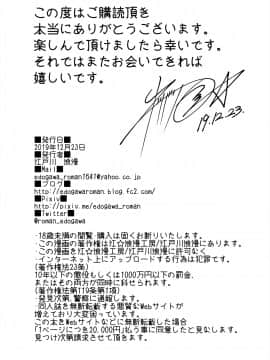 この度はご購読頂き
太当にありがとうございます。
楽しんで頂けましたら幸いです。
それではまたお会いできれば
嬉しいです。
19.12.23.
■発行日■
2019年12月23日
■発行者■
江戸川 浪漫
■Mail■
edogawa_roman1641@yahoo.co.jp
■ブログ■
http://edogawaroman.blog.fc2.com/
■Pixiv■
http://pixiv.me/edogawa_roman
■Twitter■
@roman_edogawa
・18歳未満の閲覧・購入は固くお断りいたします。
・この漫画の著作権は江☆浪漫工房/江戸川浪漫にあります。
・この漫画を江☆浪漫工房/江戸川浪漫に許可なく
・インターネット上にアップロードする行為は犯罪です。
(著作権法23条)
10年以下の懲役もしくは1000万円以下の罰金、
またはその両方が同時に科せられます。
(著作権法第119条第1項)
・発見次第、警察に通報します。
・同人誌を無断転載する悪質なWebサイトが
増えており大変困っています。
この太をWebサイトなどに無断転載した場合
「1ページにつき20,000円」払う事に同意したと見なします。
見つけ次第請求させて頂きます。